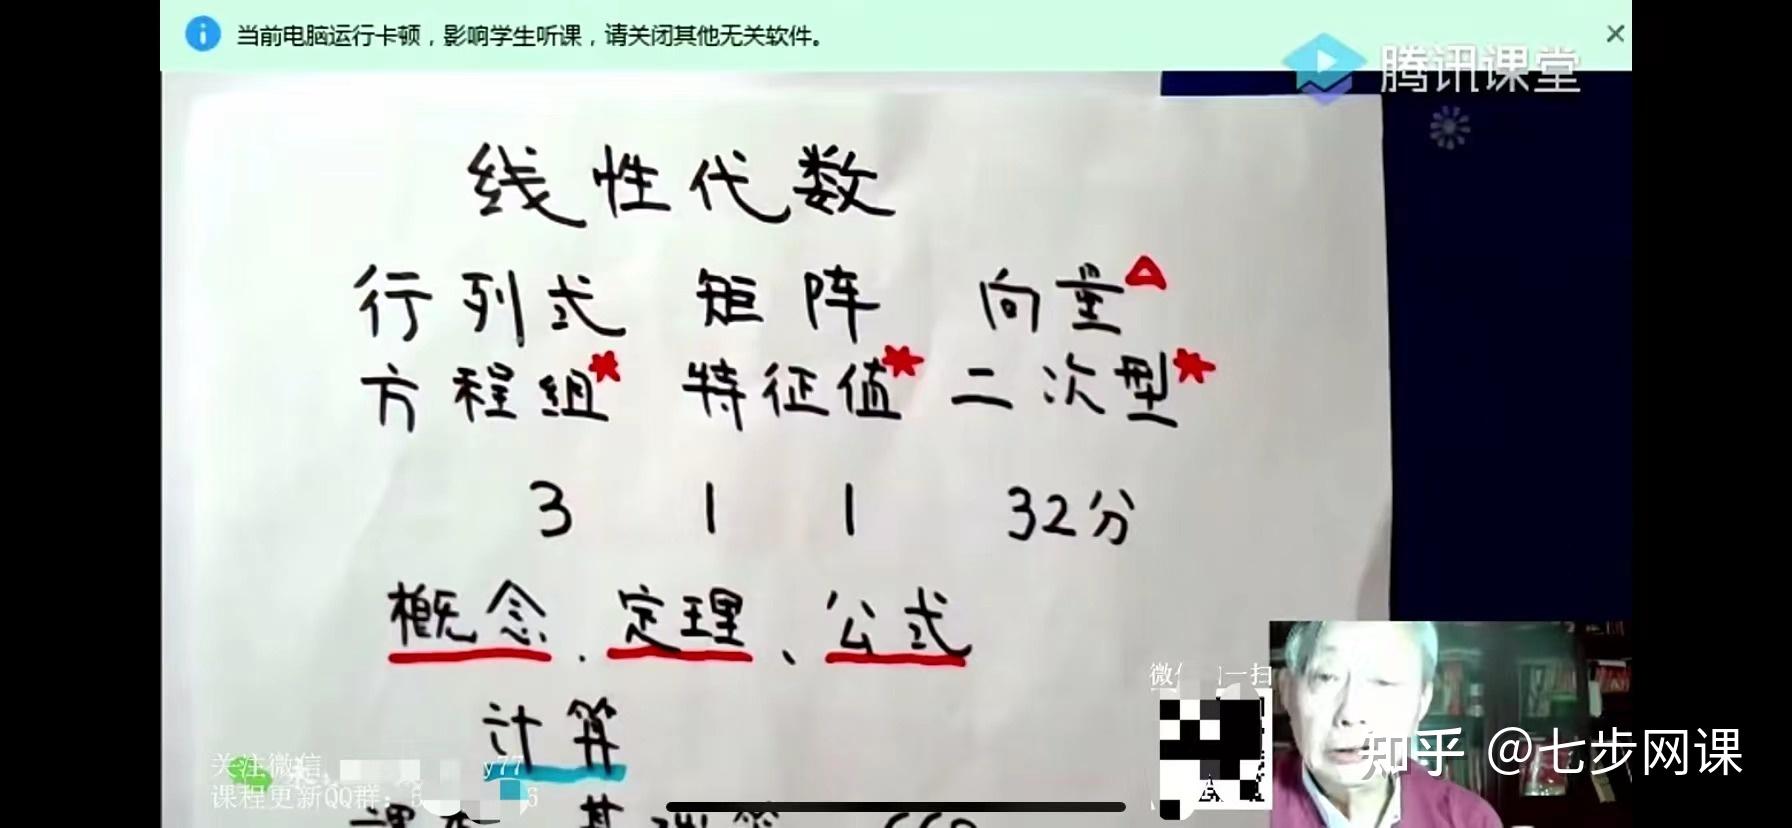 当前电脑运行卡顿，影响学生听课，请关闭其他无关软件。
腾讯课堂
线性代数
行列式 矩阵 向量
方程组 特征值 二次型
3 1 1 32分
概念、定理、公式
计算
关注微信
y77
课程更新QQ群：
6
一扫
知乎 @七步网课